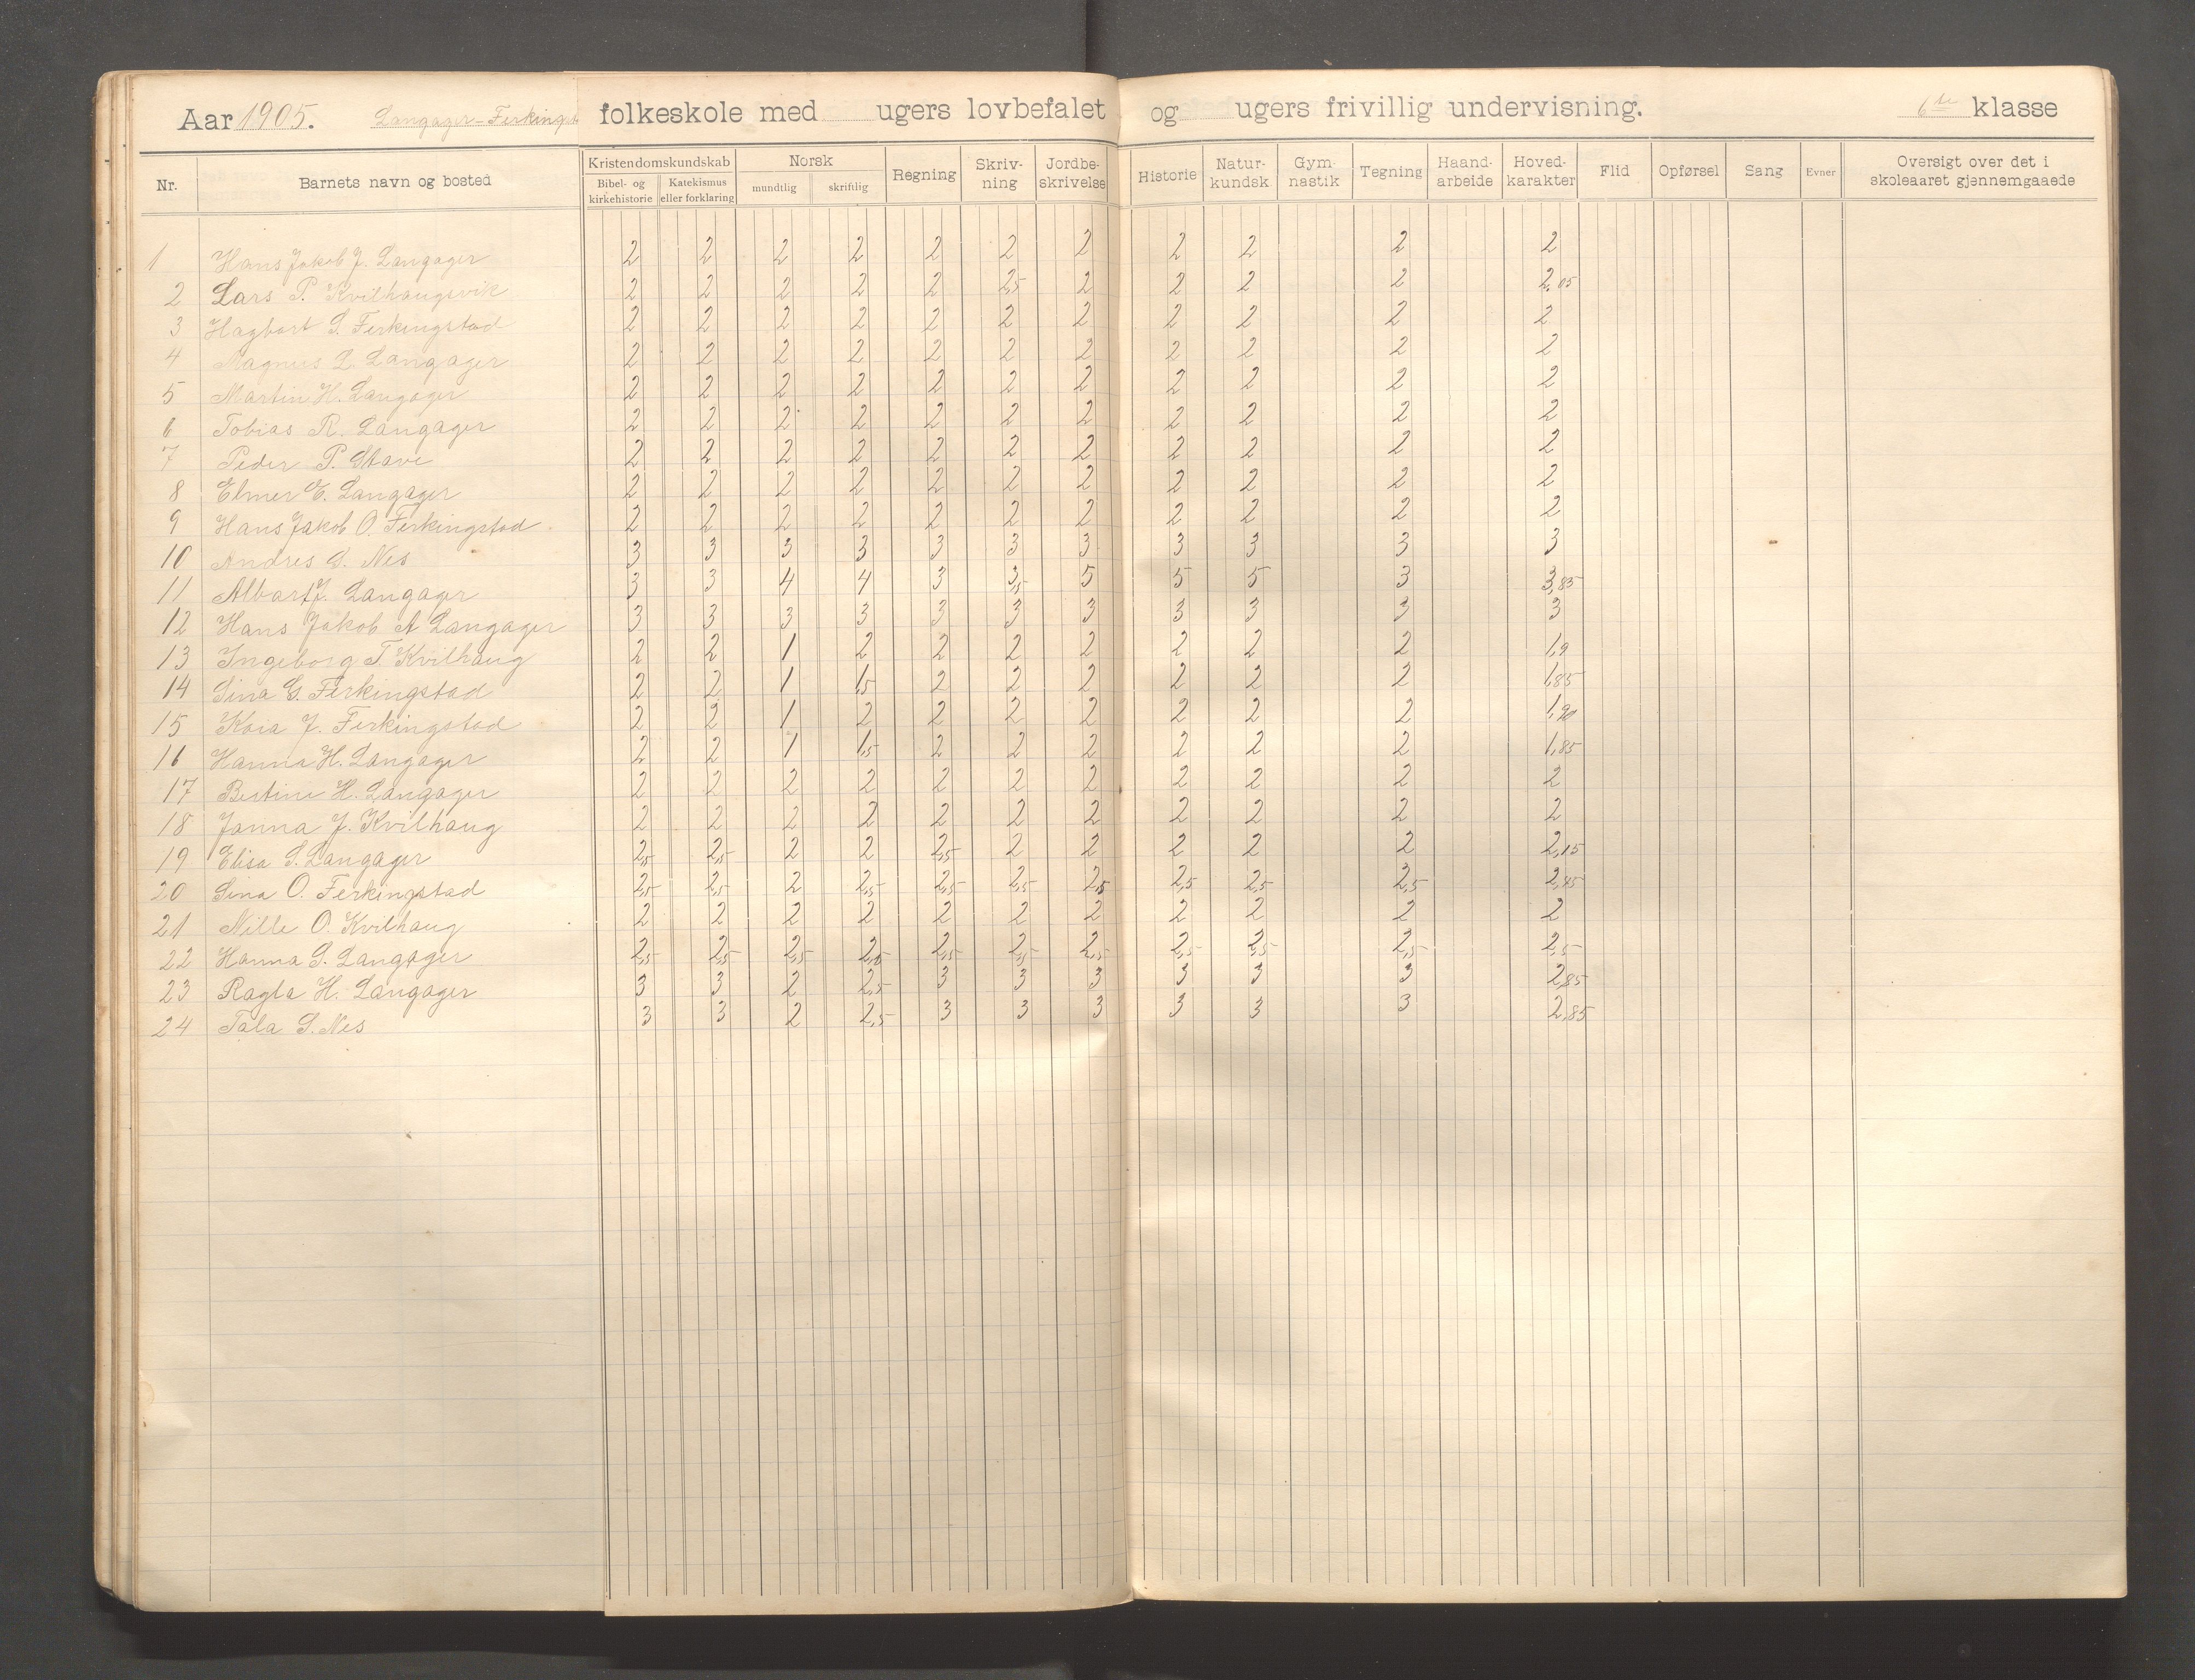 Aar 1905. Langager-Ferkingst folkeskole med ugers lovbefalet og ugers frivillig undervisning. 6te klasse
Nr. Barnets navn og bosted Kristendomskundskab Bibel- og kirkehistorie Katekismus eller forklaring Norsk mundtlig skriftlig Regning Skriv-ning Jordbe-skrivelse Historie Natur-kundsk Gym-nastik Tegning Haand-arbeide Hoved-karakter Flid Opførsel Sang Evner Oversigt over det i skoleaaret gjennemgaaede
1 Hans Jakob J. Langager 2 2 2 2 2 2 2 2 2 2 2
2 Lars P. Kvilhaugsvik 2 2 2 2 2 2,5 2 2 2 2 2,05
3 Hagbart S. Ferkingstad 2 2 2 2 2 2 2 2 2 2 2
4 Magnus L. Langager 2 2 2 2 2 2 2 2 2 2 2
5 Martin H. Langager 2 2 2 2 2 2 2 2 2 2 2
6 Tobias R. Langager 2 2 2 2 2 2 2 2 2 2 2
7 Peder P. Stave 2 2 2 2 2 2 2 2 2 2 2
8 Elmer E. Langager 2 2 2 2 2 2 2 2 2 2 2
9 Hans Jakob O. Ferkingstad 2 2 2 2 2 2 2 2 2 2 2
10 Andres S. Nes 3 3 3 3 3 3 3 3 3 3 3
11 Albart J. Langager 3 3 4 4 3 3,5 5 5 5 3 3,85
12 Hans Jakob A Langager 3 3 3 3 3 3 3 3 3 3 3
13 Ingeborg T. Kvilhaug 2 2 1 2 2 2 2 2 2 2 1,9
14 Sina G. Ferkingstad 2 2 1 1,5 2 2 2 2 2 2 1,85
15 Kaia J. Ferkingstad 2 2 1 2 2 2 2 2 2 2 1,90
16 Hanna H. Langager 2 2 1 1,5 2 2 2 2 2 2 1,85
17 Bertine H. Langager 2 2 2 2 2 2 2 2 2 2 2
18 Janna J. Kvilhaug 2 2 2 2 2 2 2 2 2 2 2
19 Elisa S. Langager 2,5 2,5 2 2 2,5 2 2 2 2 2 2,15
20 Sina O. Ferkingstad 2,5 2,5 2 2,5 2,5 2,5 2,5 2,5 2,5 2,5 2,45
21 Nille O. Kvilhaug 2 2 2 2 2 2 2 2 2 2 2
22 Hanna S. Langager 2,5 2,5 2,5 2,5 2,5 2,5 2,5 2,5 2,5 2,5 2,5
23 Ragla H. Langager 3 3 2 2,5 3 3 3 3 3 3 2,85
24 Tala S. Nes 3 3 2 2,5 3 3 3 3 3 3 2,85